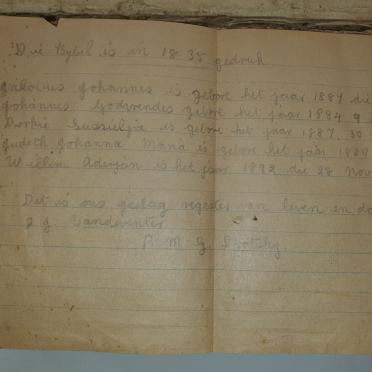 Die Bybel is in 1835 gedruk
Nikolous Johannes is gebore het jaar 1881 die
Johannes gebore het jaar 1884 9
is gebore het jaar 1887. 30
Judeth Johanna Maria is gebore het jaar 1889
Willem Aderjan is het jaar 1892 die 28 Nov
Dit is ons geslag regester van leven en do
P M G